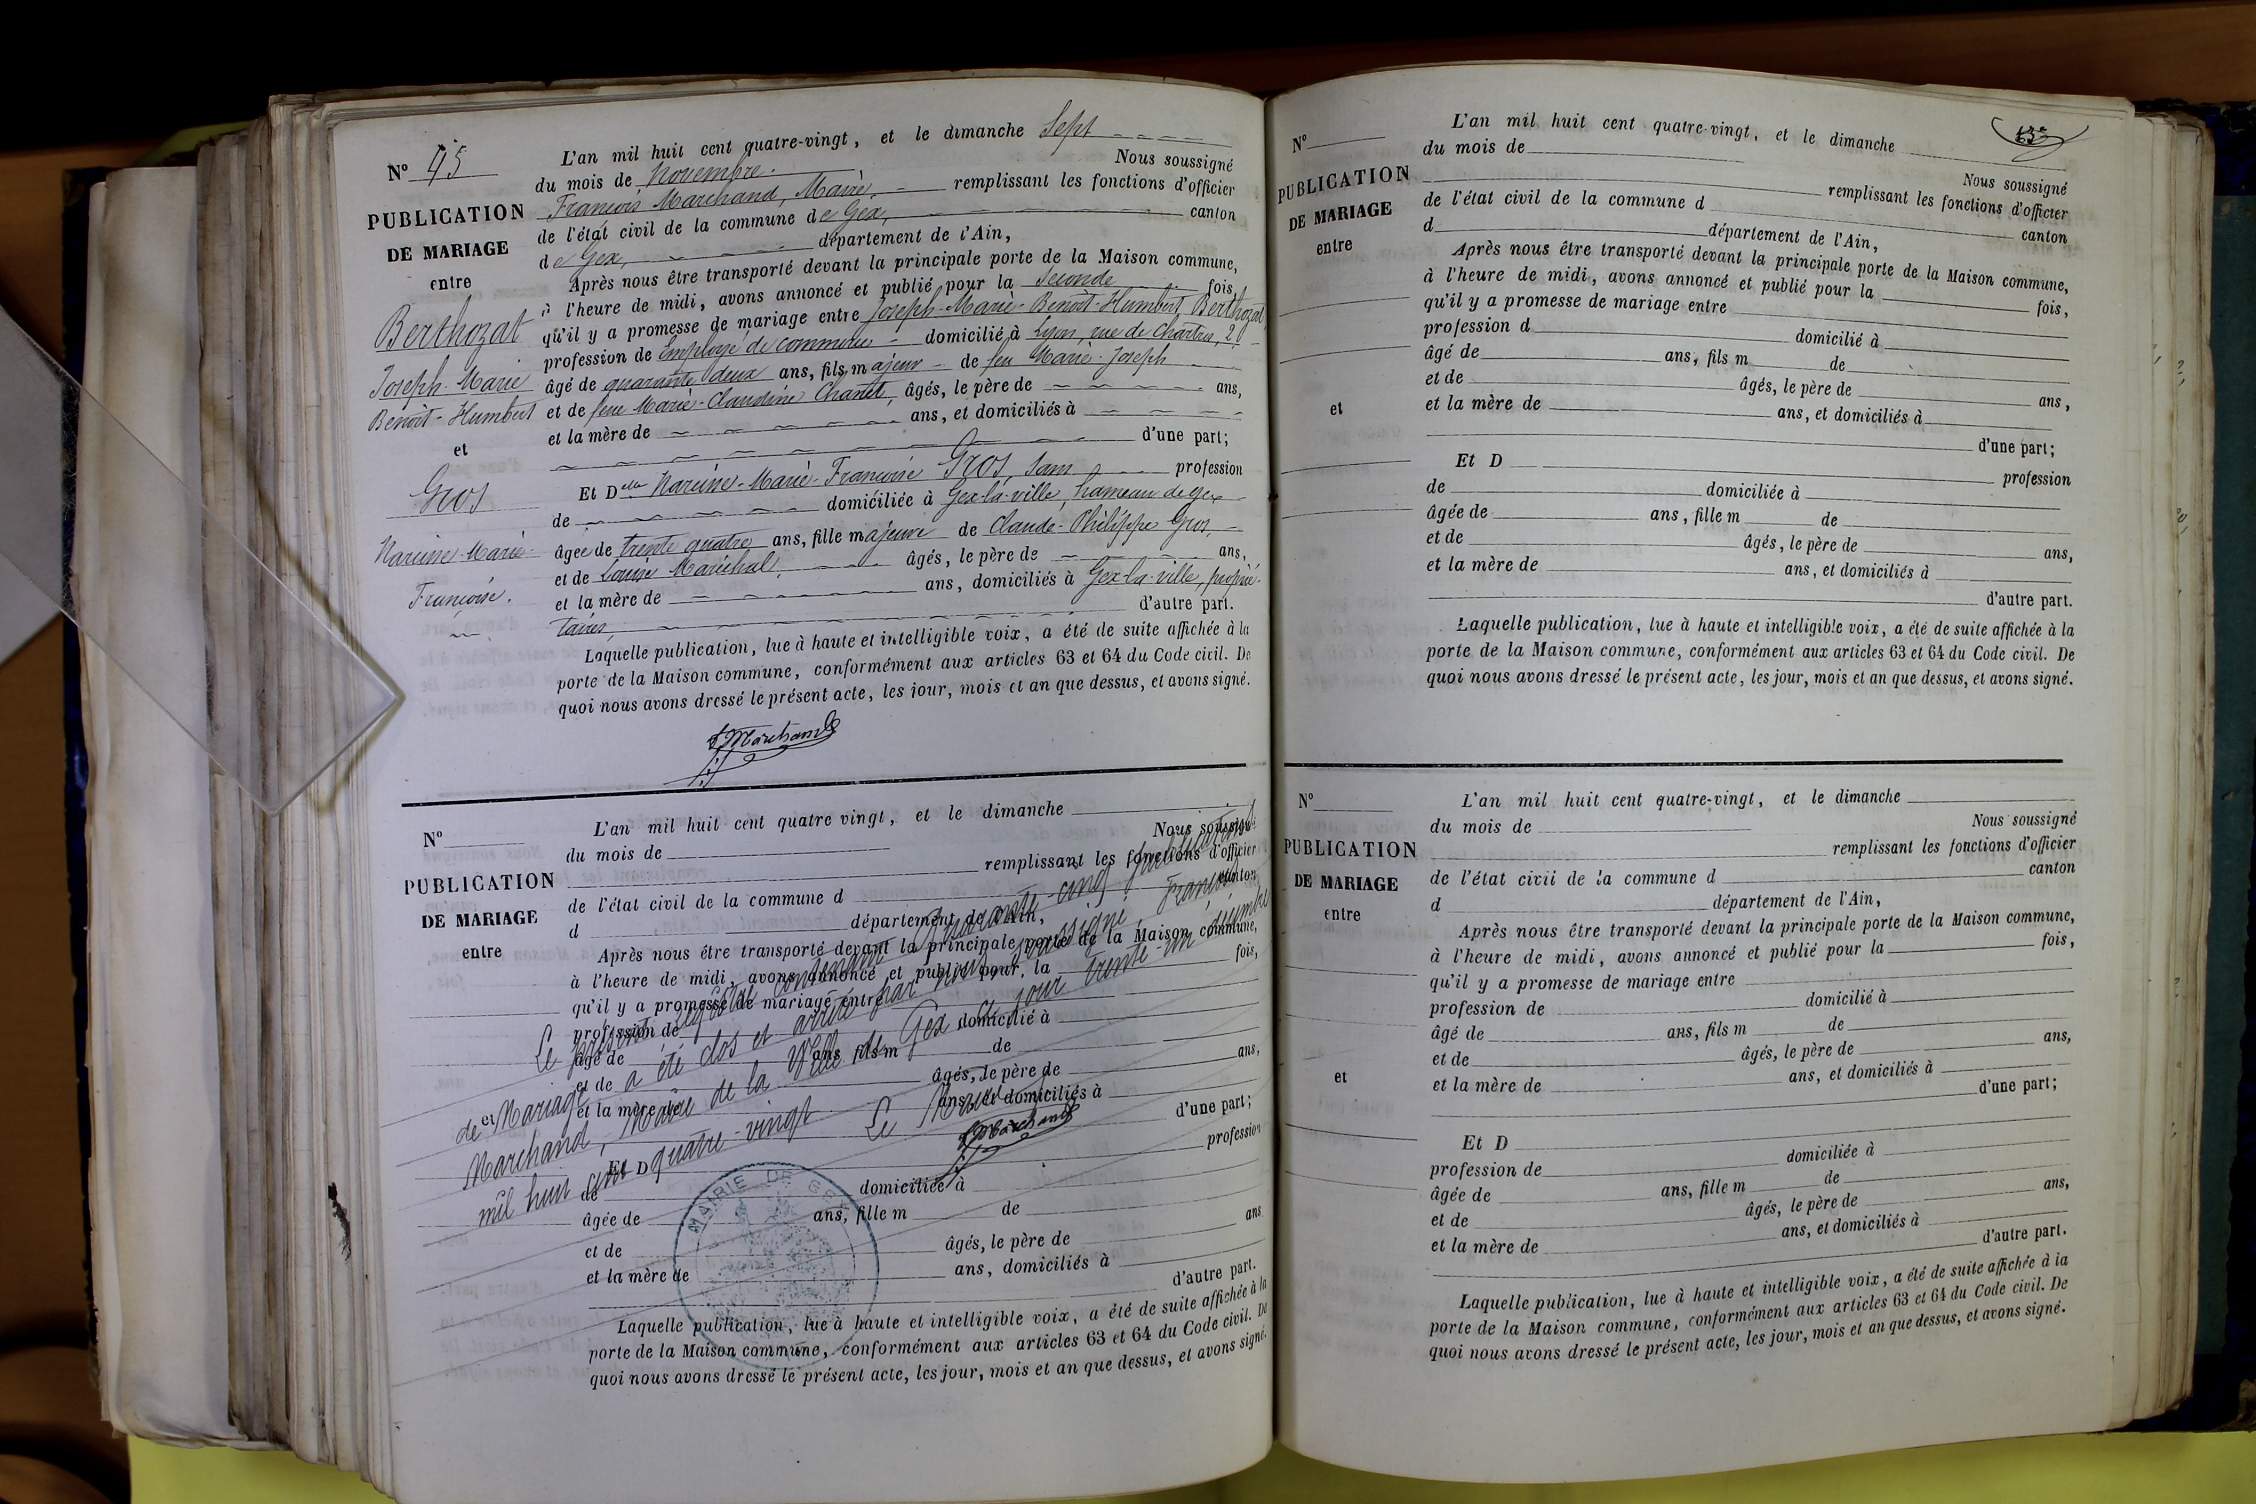 N° 45
PUBLICATION
DE MARIAGE
entre
Berthozat
Joseph-Marie
Benoît-Humbert
et
Gros
Narcisse-Marie-
Françoise.
L'an mil huit cent quatre-vingt, et le dimanche Sept
du mois de Novembre. Nous soussigné
François Marchand, Maire, remplissant les fonctions d'officier
de l'état civil de la commune de Gex, canton
de Gex, département de l'Ain,
Après nous être transporté devant la principale porte de la Maison commune,
à l'heure de midi, avons annoncé et publié pour la Seconde fois,
qu'il y a promesse de mariage entre Joseph-Marie-Benoît-Humbert Berthozat,
profession de Employé de commerce domicilié à Lyon, rue de Chartres, 20
âgé de quarante deux ans, fils majeur de feu Marie-Joseph
et de feue Marie-Claudine Chanel, âgés, le père de ans,
et la mère de ans, et domiciliés à
d'une part;
Et Delle Narcisse-Marie-Françoise Gros, sans profession
de domiciliée à Gex-la-ville, hameau de Gex
âgée de trente quatre ans, fille majeure de Claude-Philippe Gros,
et de Louise Maréchal, âgés, le père de ans,
et la mère de ans, domiciliés à Gex-la-ville, proprié-
taires, d'autre part.
Laquelle publication, lue à haute et intelligible voix, a été de suite affichée à la
porte de la Maison commune, conformément aux articles 63 et 64 du Code civil. De
quoi nous avons dressé le présent acte, les jour, mois et an que dessus, et avons signé.
F Marchand
N°
PUBLICATION
DE MARIAGE
entre
L'an mil huit cent quatre vingt, et le dimanche
du mois de Nous soussigné
remplissant les fonctions d'officier
de l'état civil de la commune d canton
d département de l'Ain,
Après nous être transporté devant la principale porte de la Maison commune,
à l'heure de midi, avons annoncé et publié pour la fois,
qu'il y a promesse de mariage entre
profession de domicilié à
âgé de ans, fils m de
et de âgés, le père de ans,
et la mère de ans, et domiciliés à
d'une part;
Et D profession
de domiciliée à
âgée de ans, fille m de
et de âgés, le père de ans
et la mère de ans, domiciliés à
d'autre part.
Laquelle publication, lue à haute et intelligible voix, a été de suite affichée à la
porte de la Maison commune, conformément aux articles 63 et 64 du Code civil. De
quoi nous avons dressé le présent acte, les jour, mois et an que dessus, et avons signé.
Le présent registre contenant quarante-cinq publications
de Mariage a été clos et arrêté par nous soussigné, François
Marchand, Maire de la Ville de Gex ce jour trente-un décembre
mil huit cent quatre-vingt Le Maire
F Marchand
MAIRIE DE GEX
N°
PUBLICATION
DE MARIAGE
entre
et
L'an mil huit cent quatre-vingt, et le dimanche
du mois de Nous soussigné
remplissant les fonctions d'officier
de l'état civil de la commune d canton
d département de l'Ain,
Après nous être transporté devant la principale porte de la Maison commune,
à l'heure de midi, avons annoncé et publié pour la fois,
qu'il y a promesse de mariage entre
profession d domicilié à
âgé de ans, fils m de
et de âgés, le père de ans,
et la mère de ans, et domiciliés à
d'une part;
Et D profession
de domiciliée à
âgée de ans, fille m de
et de âgés, le père de ans,
et la mère de ans, et domiciliés à
d'autre part.
Laquelle publication, lue à haute et intelligible voix, a été de suite affichée à la
porte de la Maison commune, conformément aux articles 63 et 64 du Code civil. De
quoi nous avons dressé le présent acte, les jour, mois et an que dessus, et avons signé.
N°
PUBLICATION
DE MARIAGE
entre
et
L'an mil huit cent quatre-vingt, et le dimanche
du mois de Nous soussigné
remplissant les fonctions d'officier
de l'état civil de la commune d canton
d département de l'Ain,
Après nous être transporté devant la principale porte de la Maison commune,
à l'heure de midi, avons annoncé et publié pour la fois,
qu'il y a promesse de mariage entre
profession de domicilié à
âgé de ans, fils m de
et de âgés, le père de ans,
et la mère de ans, et domiciliés à
d'une part;
Et D
profession de domiciliée à
âgée de ans, fille m de
et de âgés, le père de ans,
et la mère de ans, et domiciliés à
d'autre part.
Laquelle publication, lue à haute et intelligible voix, a été de suite affichée à la
porte de la Maison commune, conformément aux articles 63 et 64 du Code civil. De
quoi nous avons dressé le présent acte, les jour, mois et an que dessus, et avons signé.